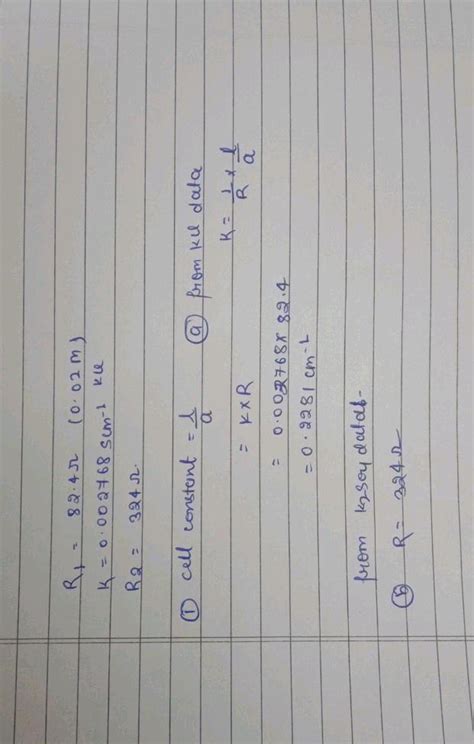 R1 = 82.4Ω (0.02M)
K = 0.002768 Scm⁻¹ KCl
R2 = 324Ω.
① cell constant = l/a
ⓐ from KCl data
K = 1/R × l/a
= K×R
= 0.002768×82.4
= 0.2281 cm⁻¹
from K2SO4 data:-
ⓑ R = 324Ω